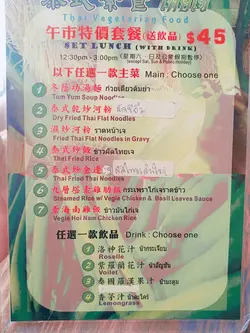 Thai Vegetarian Food
午市特價套餐(送飲品) $45
SET LUNCH (WITH DRINK)
12:30pm - 3:00pm
(except Sat, Sun & Public Holiday)
以下任選一款主菜 Main : Choose one
1 冬蔭功湯麵 ก๋วยเตี๋ยวต้มยำ
Tom Yum Soup Noodles
2 泰式乾炒河粉
Dry Fried Thai Flat Noodles
3 濕炒河粉 ราดหน้าเจ
Fried Thai Flat Noodles in Gravy
4 泰式炒飯 ข้าวผัดไทยเจ
Thai Fried Rice
5 泰式炒金邊
Thai Fried Thai Noodles
6 九層塔素雞肋飯 กระเพราไก่เจราดข้าว
Steamed Rice w/ Vegie Chicken & Basil Leaves Sauce
7 素海南雞飯 ข้าวมันไก่เจ
Vegie Hoi Nam Chicken Rice
任選一款飲品 Drink : Choose one
1 洛神花汁 น้ำกระเจี๊ยบ
Roselle
2 紫羅蘭花汁 น้ำอัญชัน
Violet
3 泰國羅漢果汁 น้ำมะตูม
4 香茅汁 น้ำตะไคร้
Lemongrass